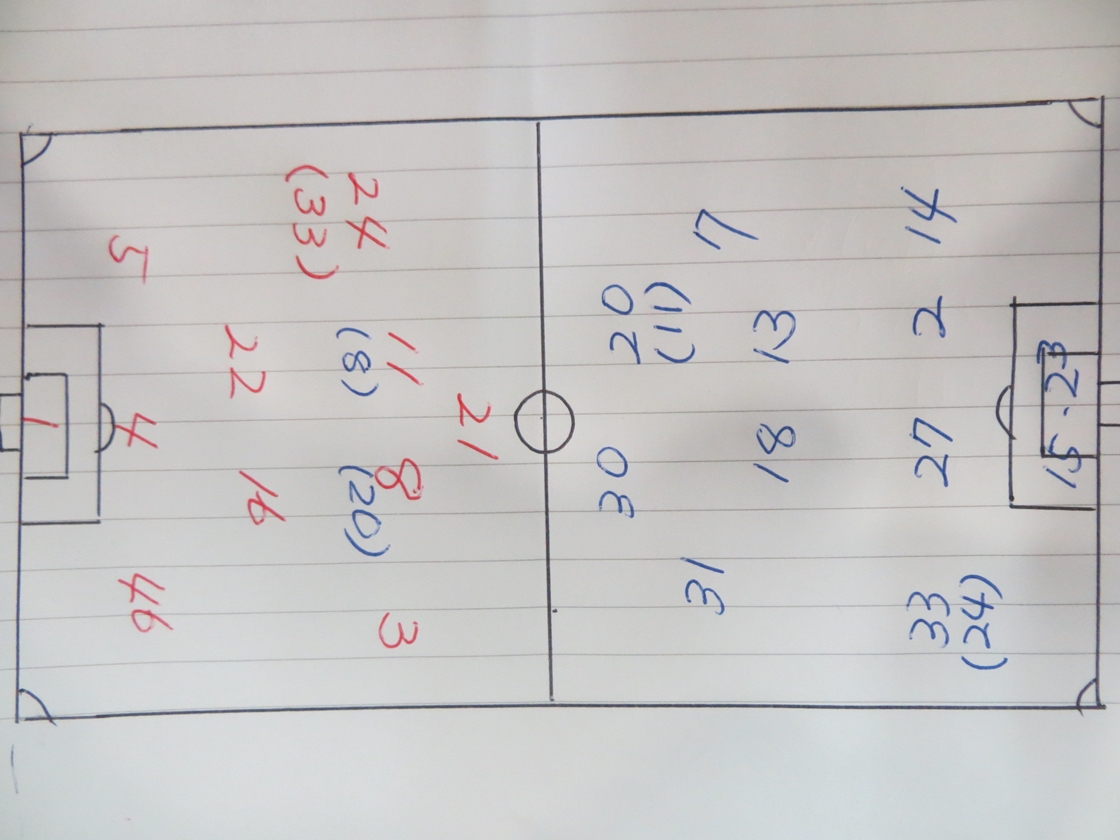 1
5
4
46
22
16
24
(33)
11
(8)
8
(20)
3
21
20
(11)
30
7
13
18
31
14
2
27
33
(24)
15・23